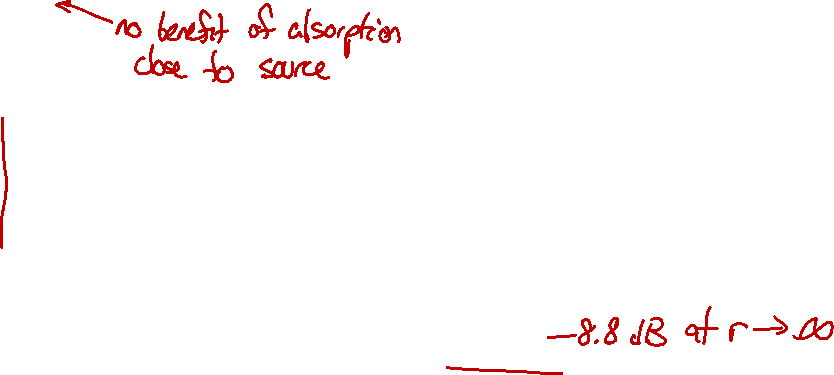 no benefit of absorption
close to source
-8.8 dB at r → ∞